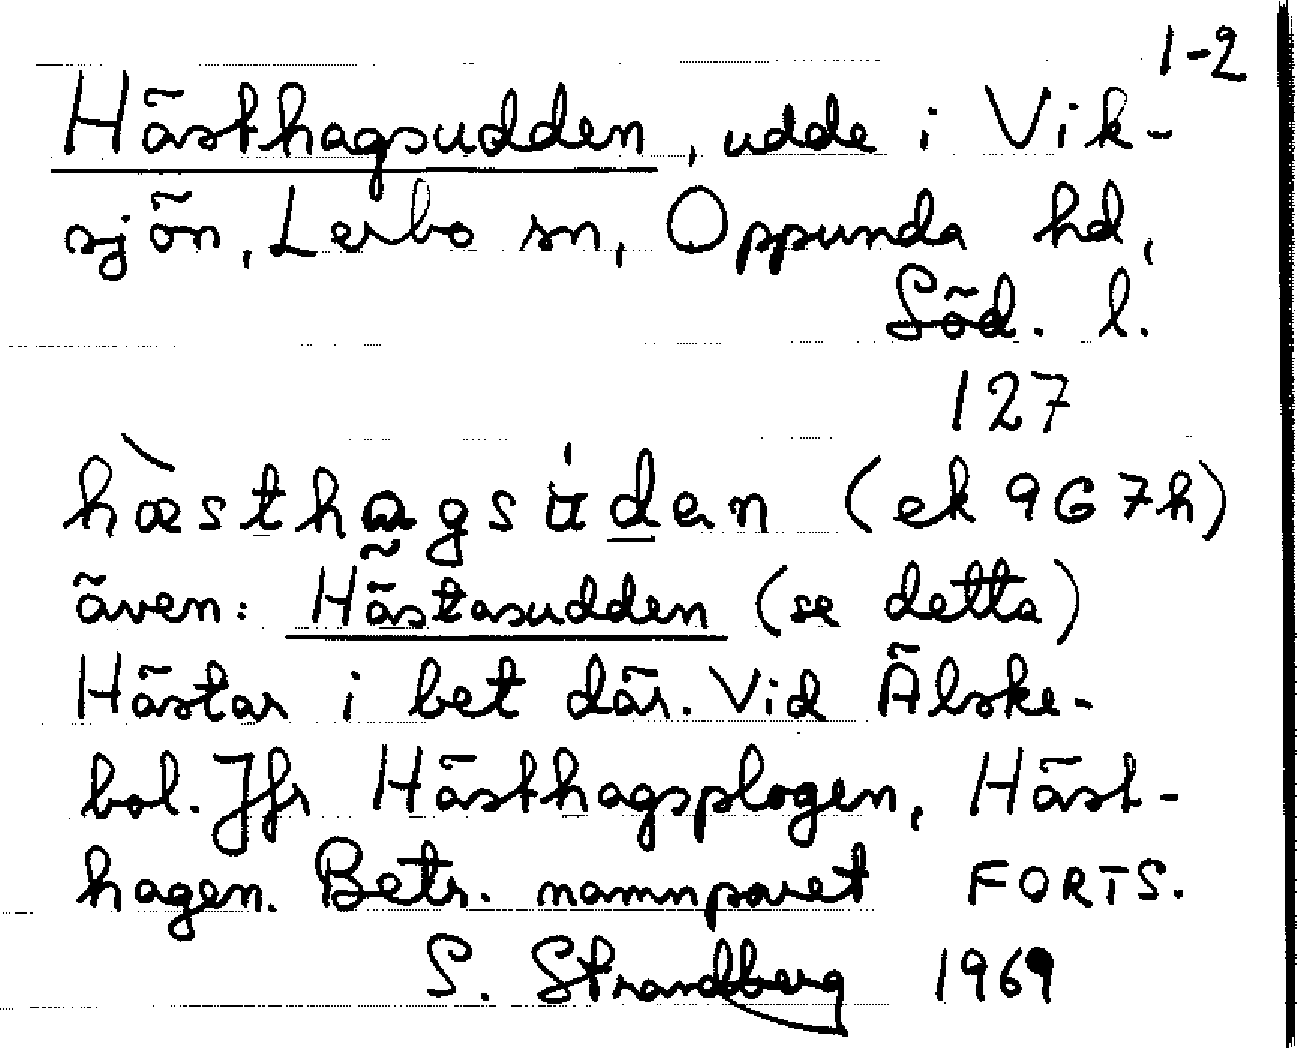 1-2
Hästhagsudden, udde i Vik-
sjön, Lerbo sn, Oppunda hd,
Söd. l.
127
hæ̀sthagsu̍den (ek 9G7h)
även: Hästasudden (se detta)
Hästar i bet där. Vid Älske-
bol. Jfr Hästhagsplogen, Häst-
hagen. Betr. namnparet FORTS.
S. Strandberg 1969